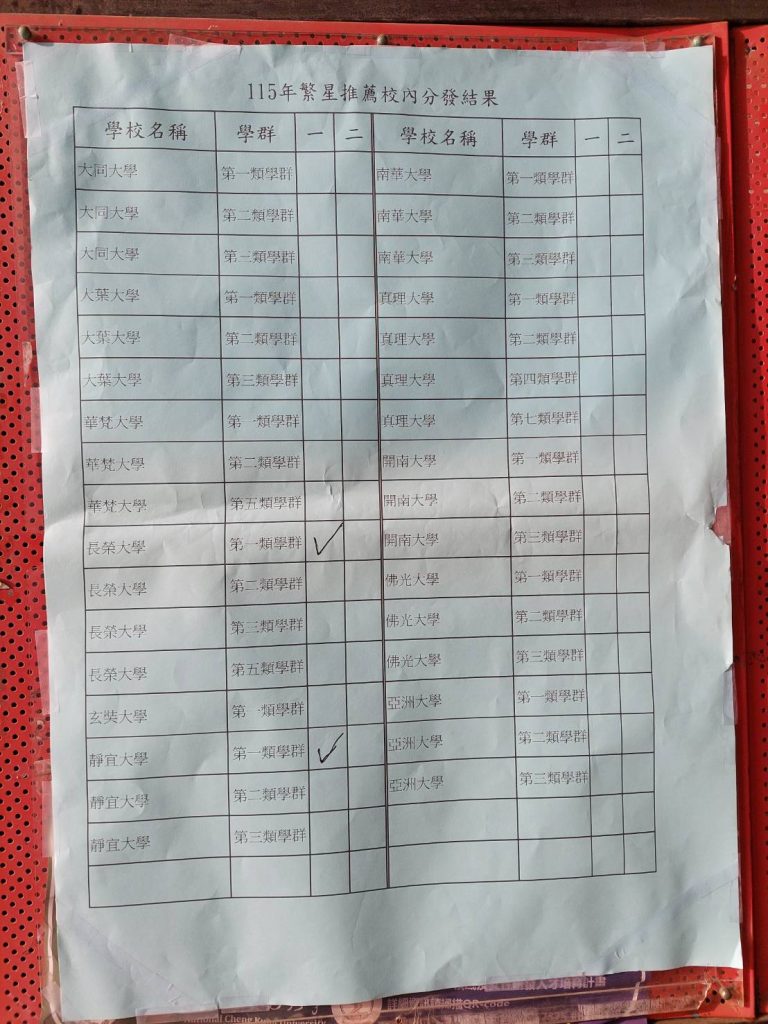 115年繁星推薦校內分發結果
學校名稱 學群 一 二 學校名稱 學群 一 二
大同大學 第一類學群 南華大學 第一類學群
大同大學 第二類學群 南華大學 第二類學群
大同大學 第三類學群 南華大學 第三類學群
大葉大學 第一類學群 真理大學 第一類學群
大葉大學 第二類學群 真理大學 第二類學群
大葉大學 第三類學群 真理大學 第四類學群
華梵大學 第一類學群 真理大學 第七類學群
華梵大學 第二類學群 開南大學 第一類學群
華梵大學 第五類學群 開南大學 第二類學群
長榮大學 第一類學群 ✓ 開南大學 第三類學群
長榮大學 第二類學群 佛光大學 第一類學群
長榮大學 第三類學群 佛光大學 第二類學群
長榮大學 第五類學群 佛光大學 第三類學群
玄奘大學 第一類學群 亞洲大學 第一類學群
靜宜大學 第一類學群 ✓ 亞洲大學 第二類學群
靜宜大學 第二類學群 亞洲大學 第三類學群
靜宜大學 第三類學群
人才培育計畫
National Cheng Kung University